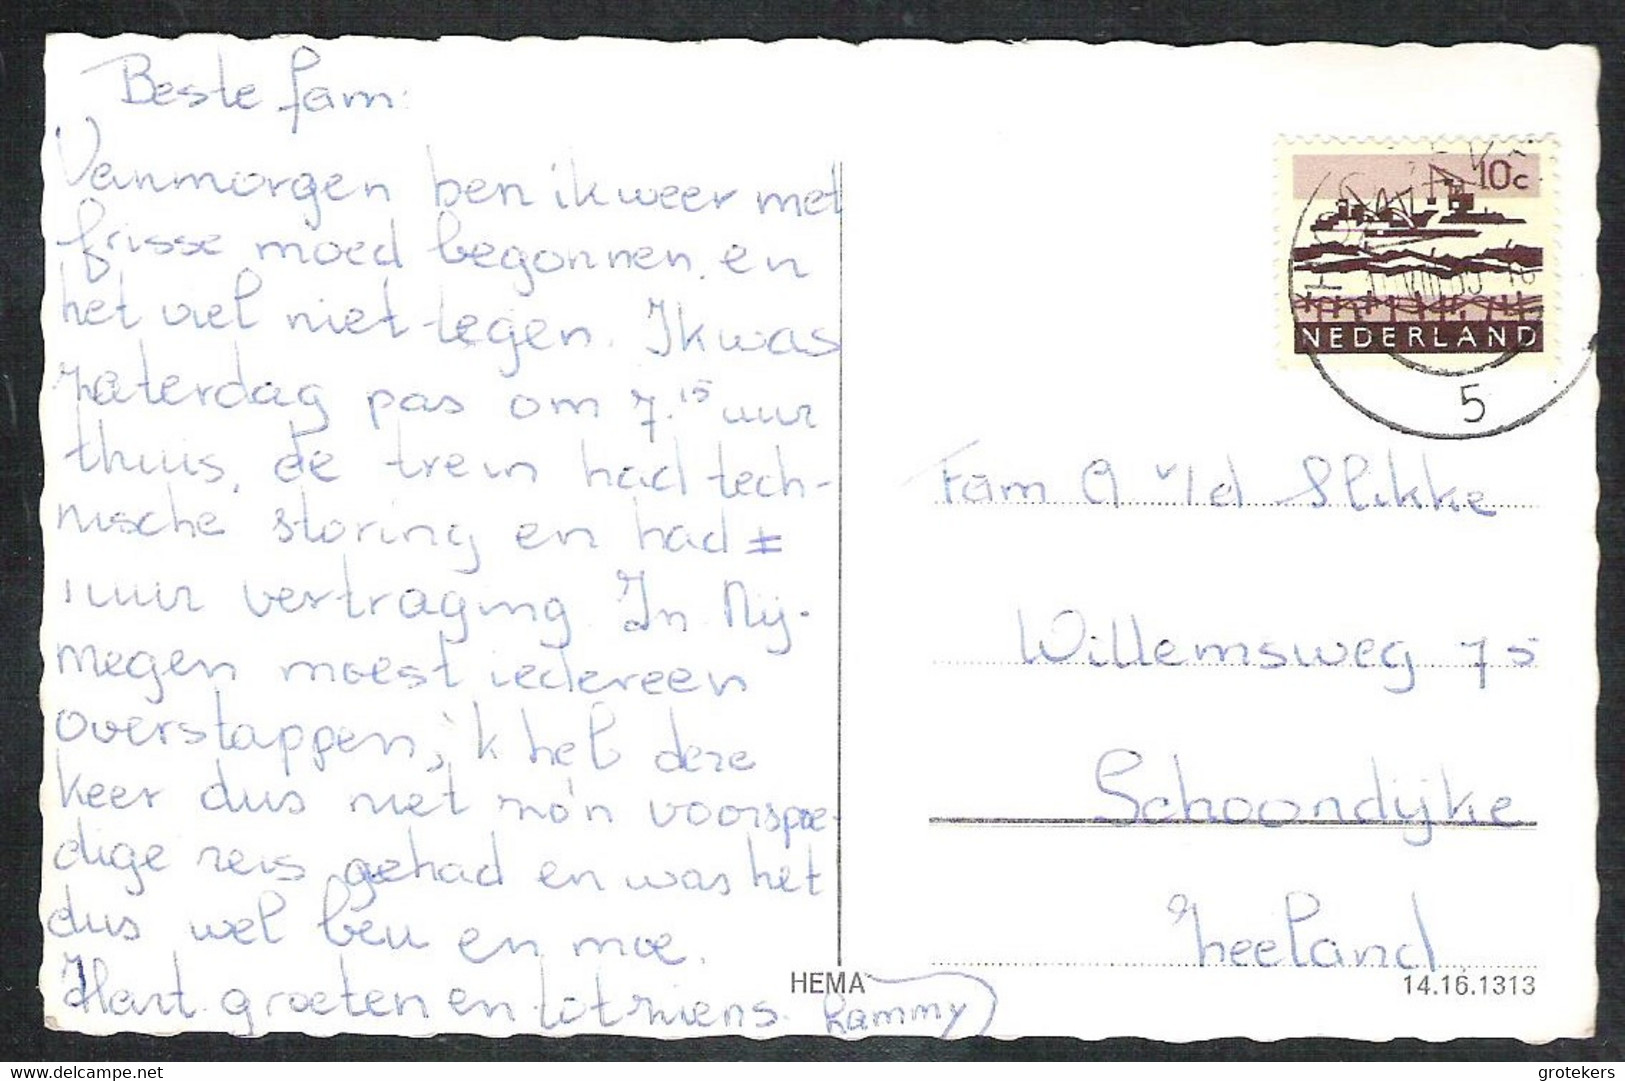 Beste fam:
Vanmorgen ben ik weer met
frisse moed begonnen. en
het viel niet tegen. Ik was
zaterdag pas om 7.15 uur
thuis, de trein had tech-
nische storing en had ±
1 uur vertraging. In Nij-
megen moest iedereen
overstappen, ik heb deze
keer dus niet zo'n voorspoe-
dige reis gehad en was het
dus wel beu en moe.
Hart. groeten en tot ziens.
10c
NEDERLAND
5
Fam A v/d Slikke
Willemsweg 75
Schoondijke
Zeeland
HEMA
14.16.1313
delcampe.net
grotekers